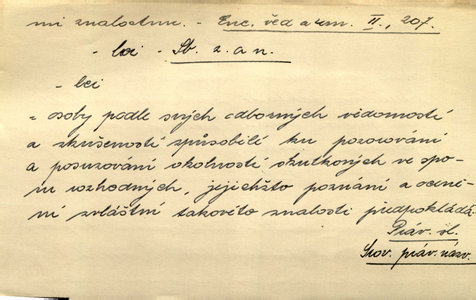 mi znalostmi. - Enc. věd a um. II., 207.
- lci - Sb. z. a n.
- lci
= osoby podle svých odborných vědomostí
a zkušeností způsobilé ku pozorování
a posuzování okolností skutkových ve spo-
ru rozhodných, jejichžto poznání a oceně-
ní zvláštní takovéto znalosti předpokládá.
Práv. sl.
Slov. práv. názv.